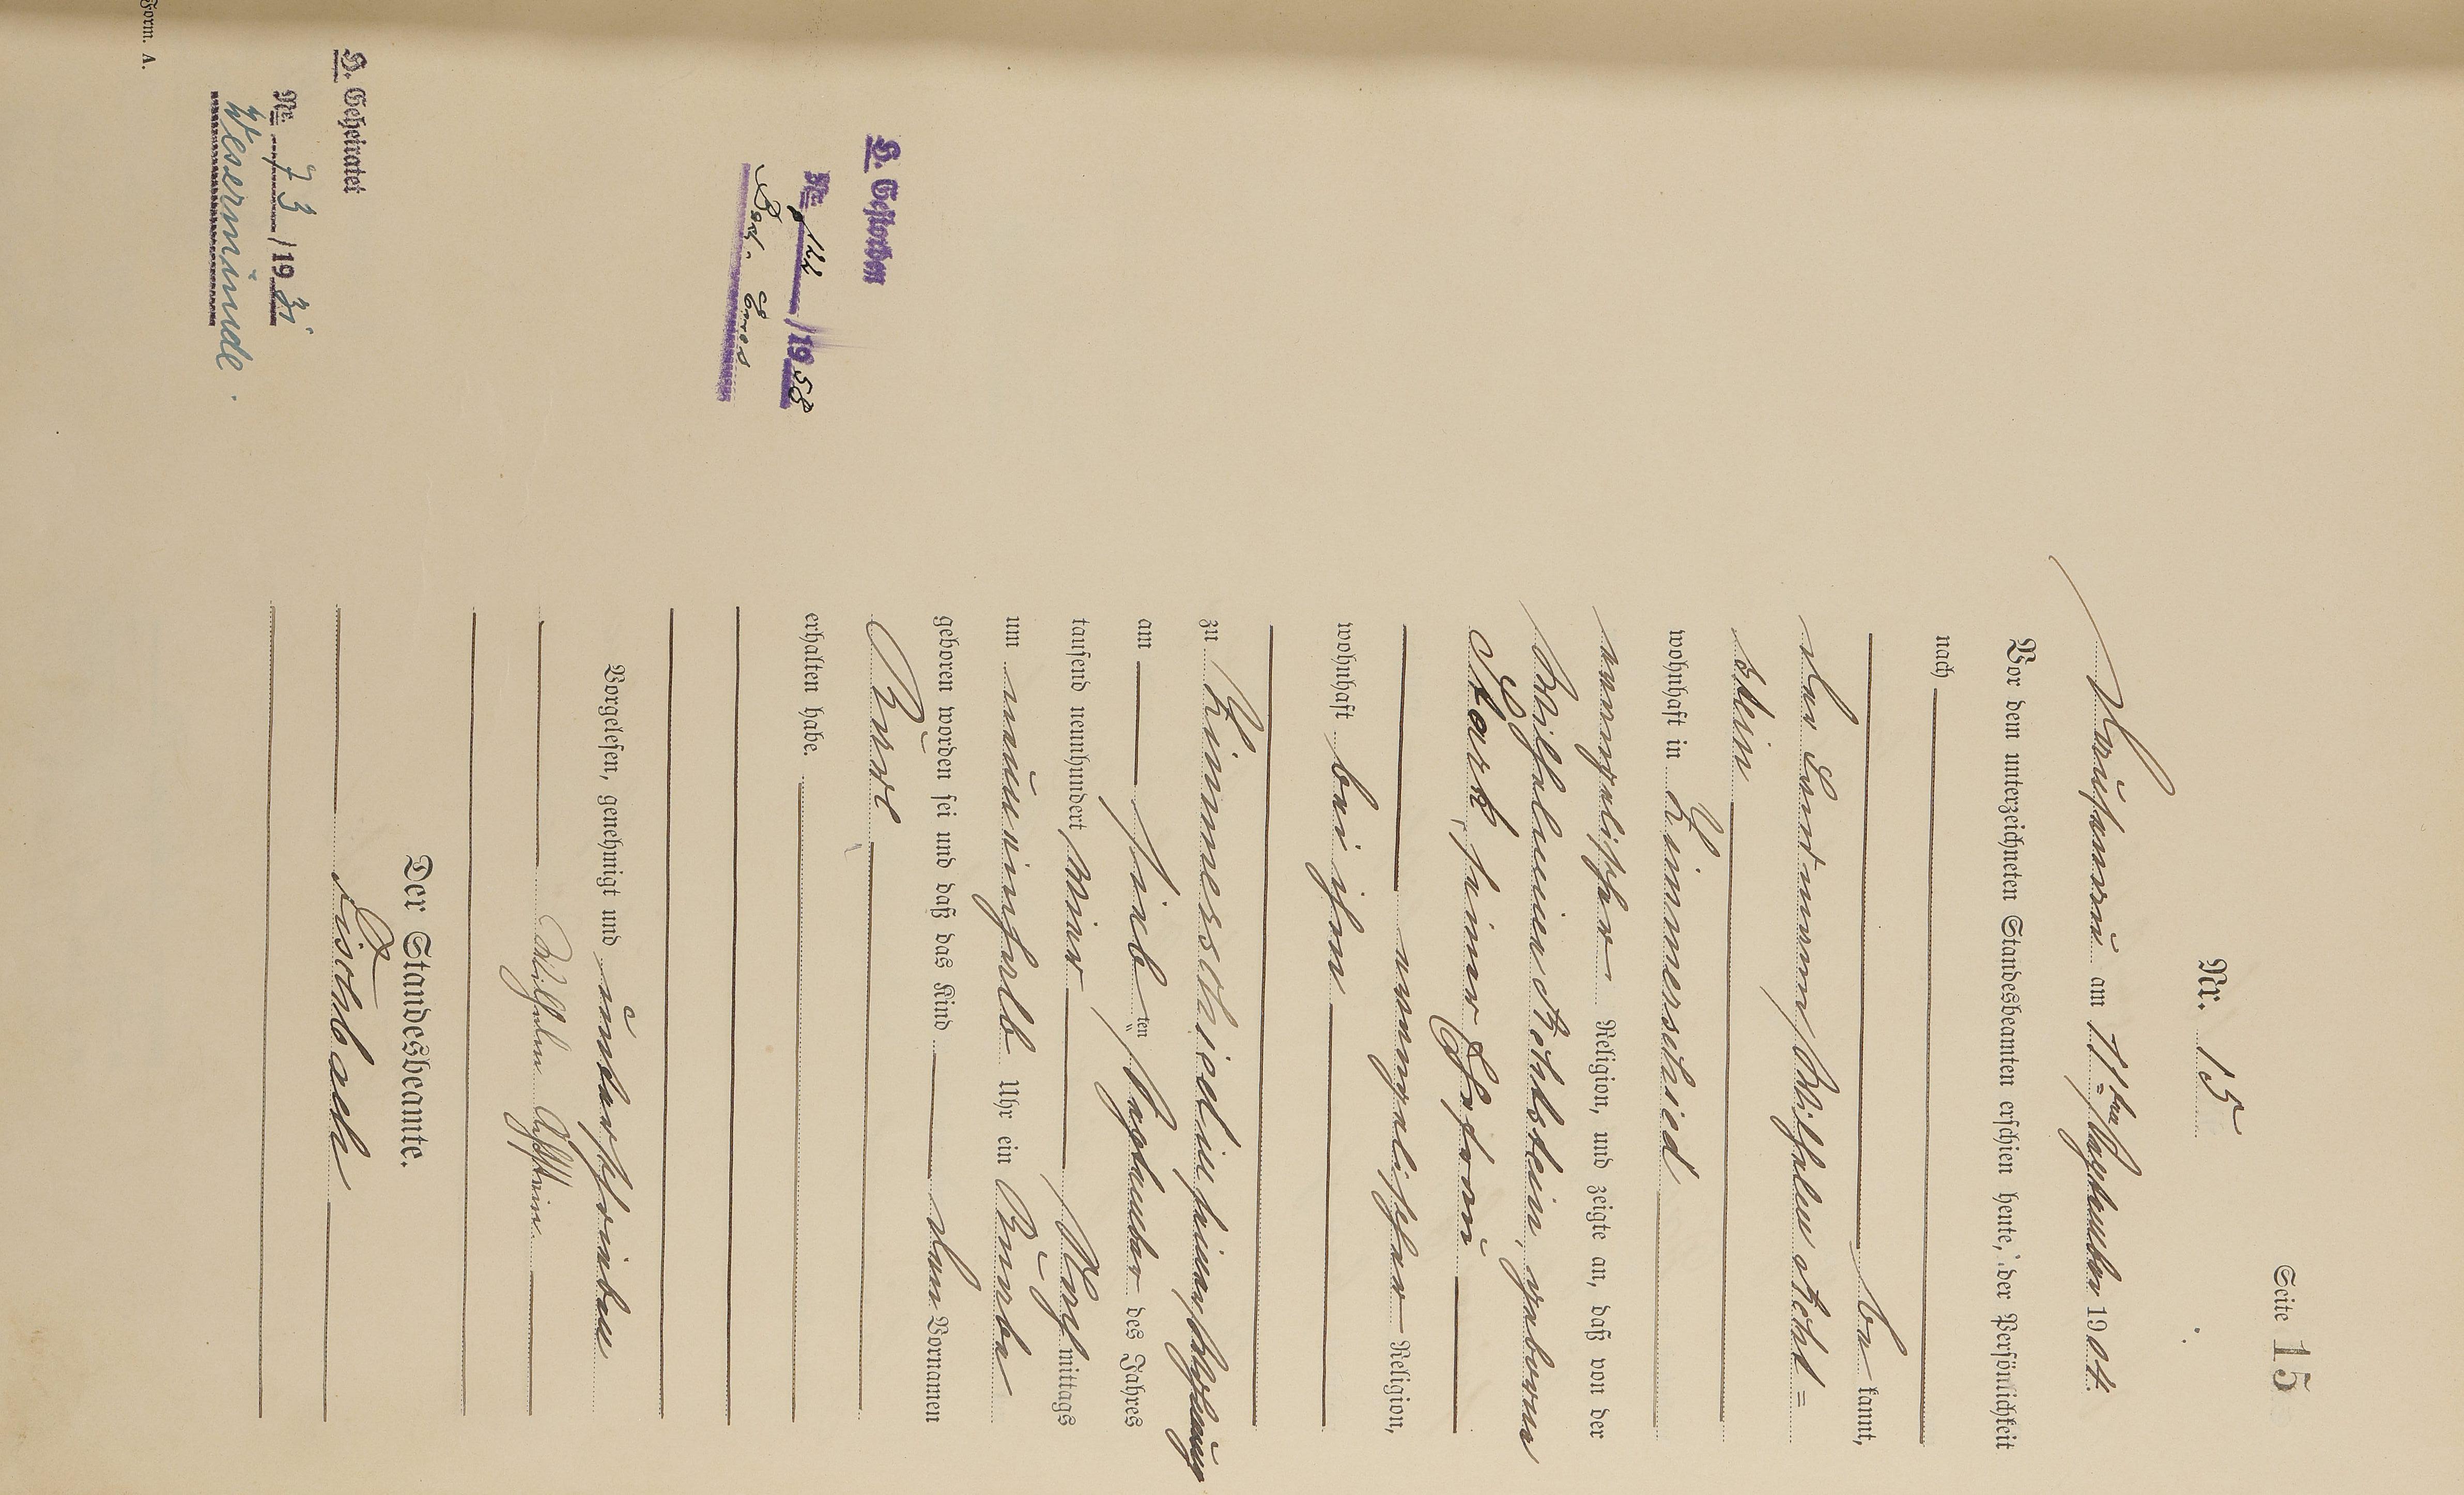 Seite 15
Nr. 15
Dausenau am 11=ten September 1904.
Vor dem unterzeichneten Standesbeamten erschien heute, der Persönlichkeit
nach
be kannt,
der Landmann, Wilhelm
stein
wohnhaft in Zimmerschied
evangelischer Religion, und zeigte an, daß von der
Wilhelmine geborene
Stork, seiner Ehefrau
evangelischer Religion,
wohnhaft bei ihm
zu Zimmerschied in seiner Wohnung
am sieb ten September des Jahres
tausend neunhundert vier Nach mittags
um neuneinhalb Uhr ein Knabe
geboren worden sei und daß das Kind den Vornamen
Karl
erhalten habe.
Vorgelesen, genehmigt und unterschrieben
Wilhelm
Der Standesbeamte.
Fischbach
H. Gestorben
Nr. /1953
Bad Ems
H. Geheiratet
Nr. 73/1931
Wesermünde.
Form. A.